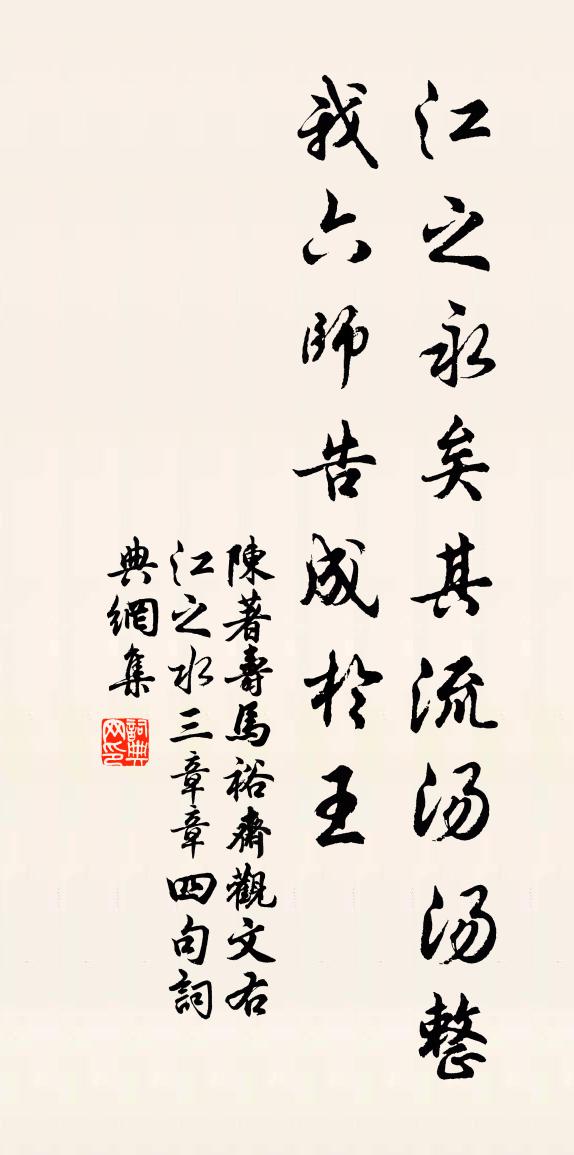 江之永矣其流汤汤整
我六師告成於王
陳著壽馬裕齋觀文右
江之水三章章四句詞
典網集
詞典网印